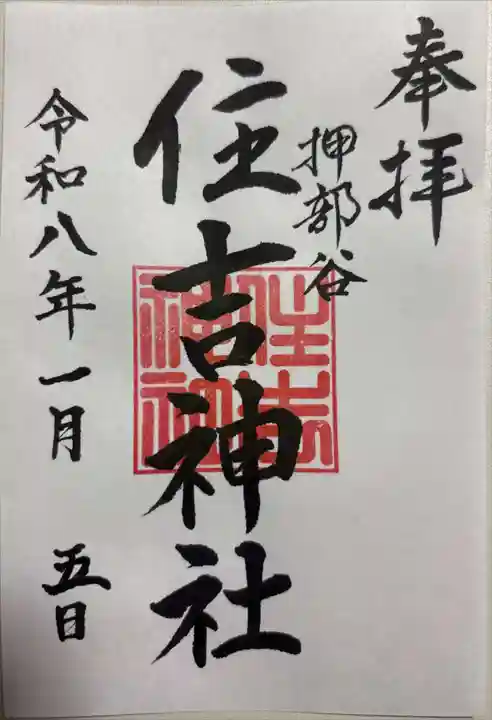 奉拝
押部谷
住吉神社
住吉
神社
令和八年一月 五日